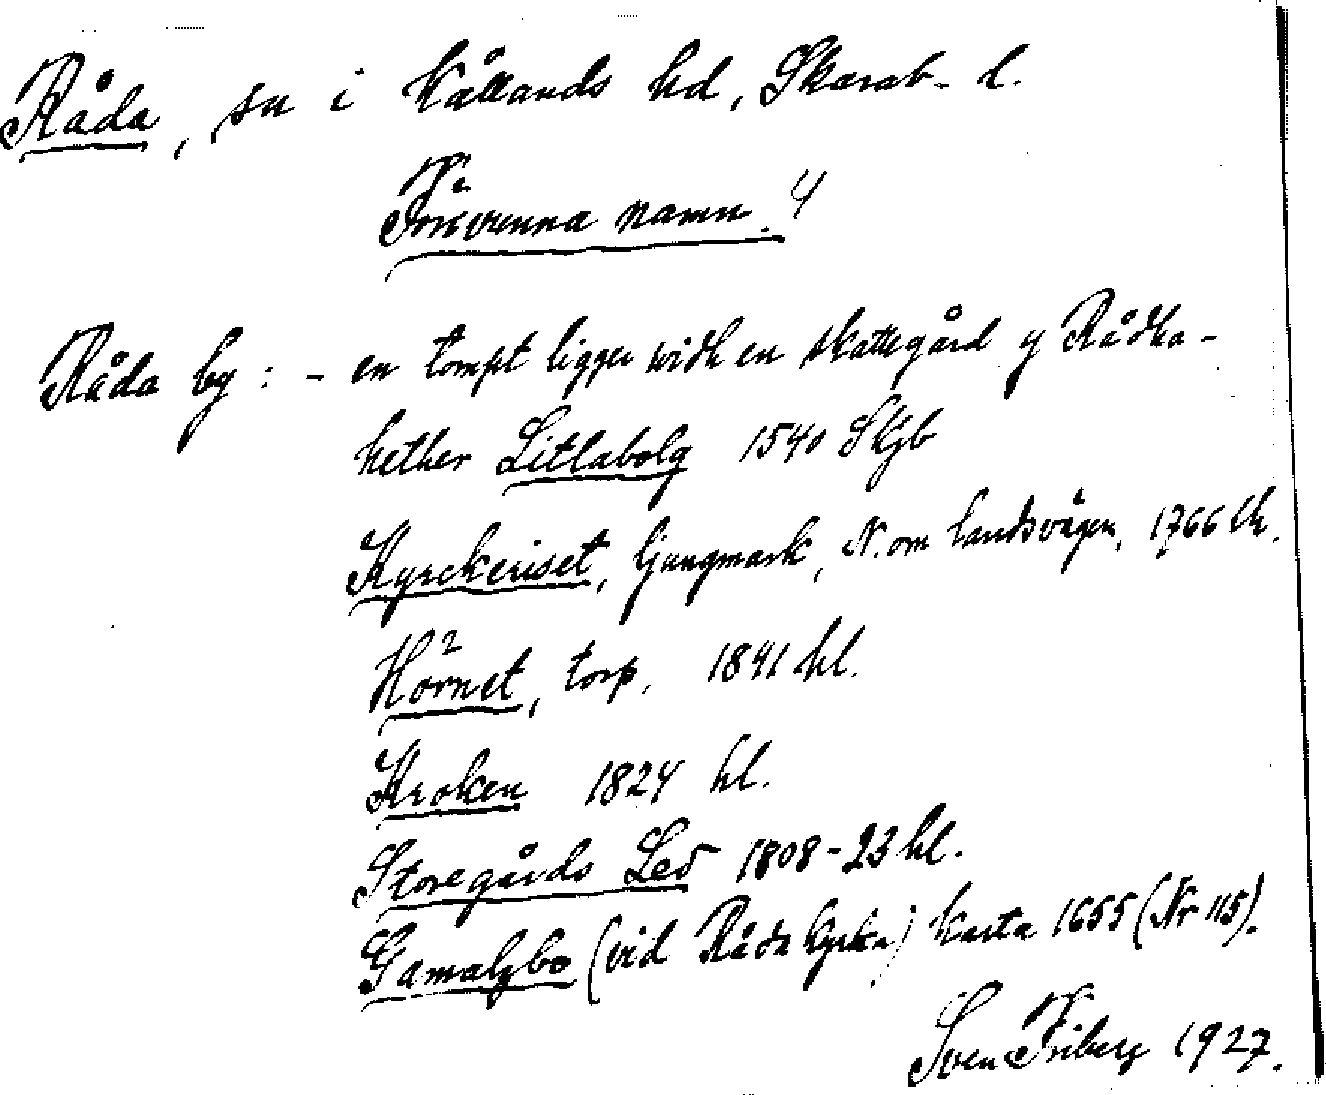 Råda, sn i Kållands hd, Skarab. l.
Försvunna namn. 4
Råda by: - en tompt ligger widh en skattegård y Rådha -
hether Litlabolg 1540 Skjb
Kyrckeriset, ljungmark, N. om landsvägen, 1766 lh.
Hörnet, torp, 1841 hl.
Kroken 1824 hl.
Storegårds Led 1808-23 hl.
Gamalzbo (vid Råda kyrka) karta 1655 (Nr 115).
Sven Friberg 1927.